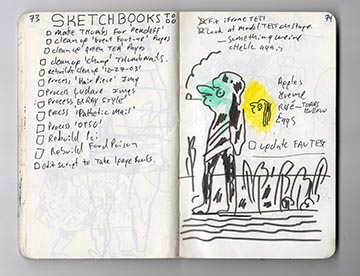 73
SKETCHBOOKS TO DO
MAKE THUMBS FOR
cleanup "Event Fortune" Pages
cleanup "green TEA" Pages
cleanup "chump" Thumbnails.
rebuild+cleanup "12-27-03"
process "Hair Piece" Imgs
process Images
process "ERRAY STYLE"
Process "Pathetic Mail"
Process "OTSO"
Rebuild Pci
Rebuild Food Poison
Edit script to Take 1page Books.
74
Fix iframe TEST
Look at model TEST outtape.
Something weird
check again
Apples
Bread
Rice
Eggs
update FAV TEST